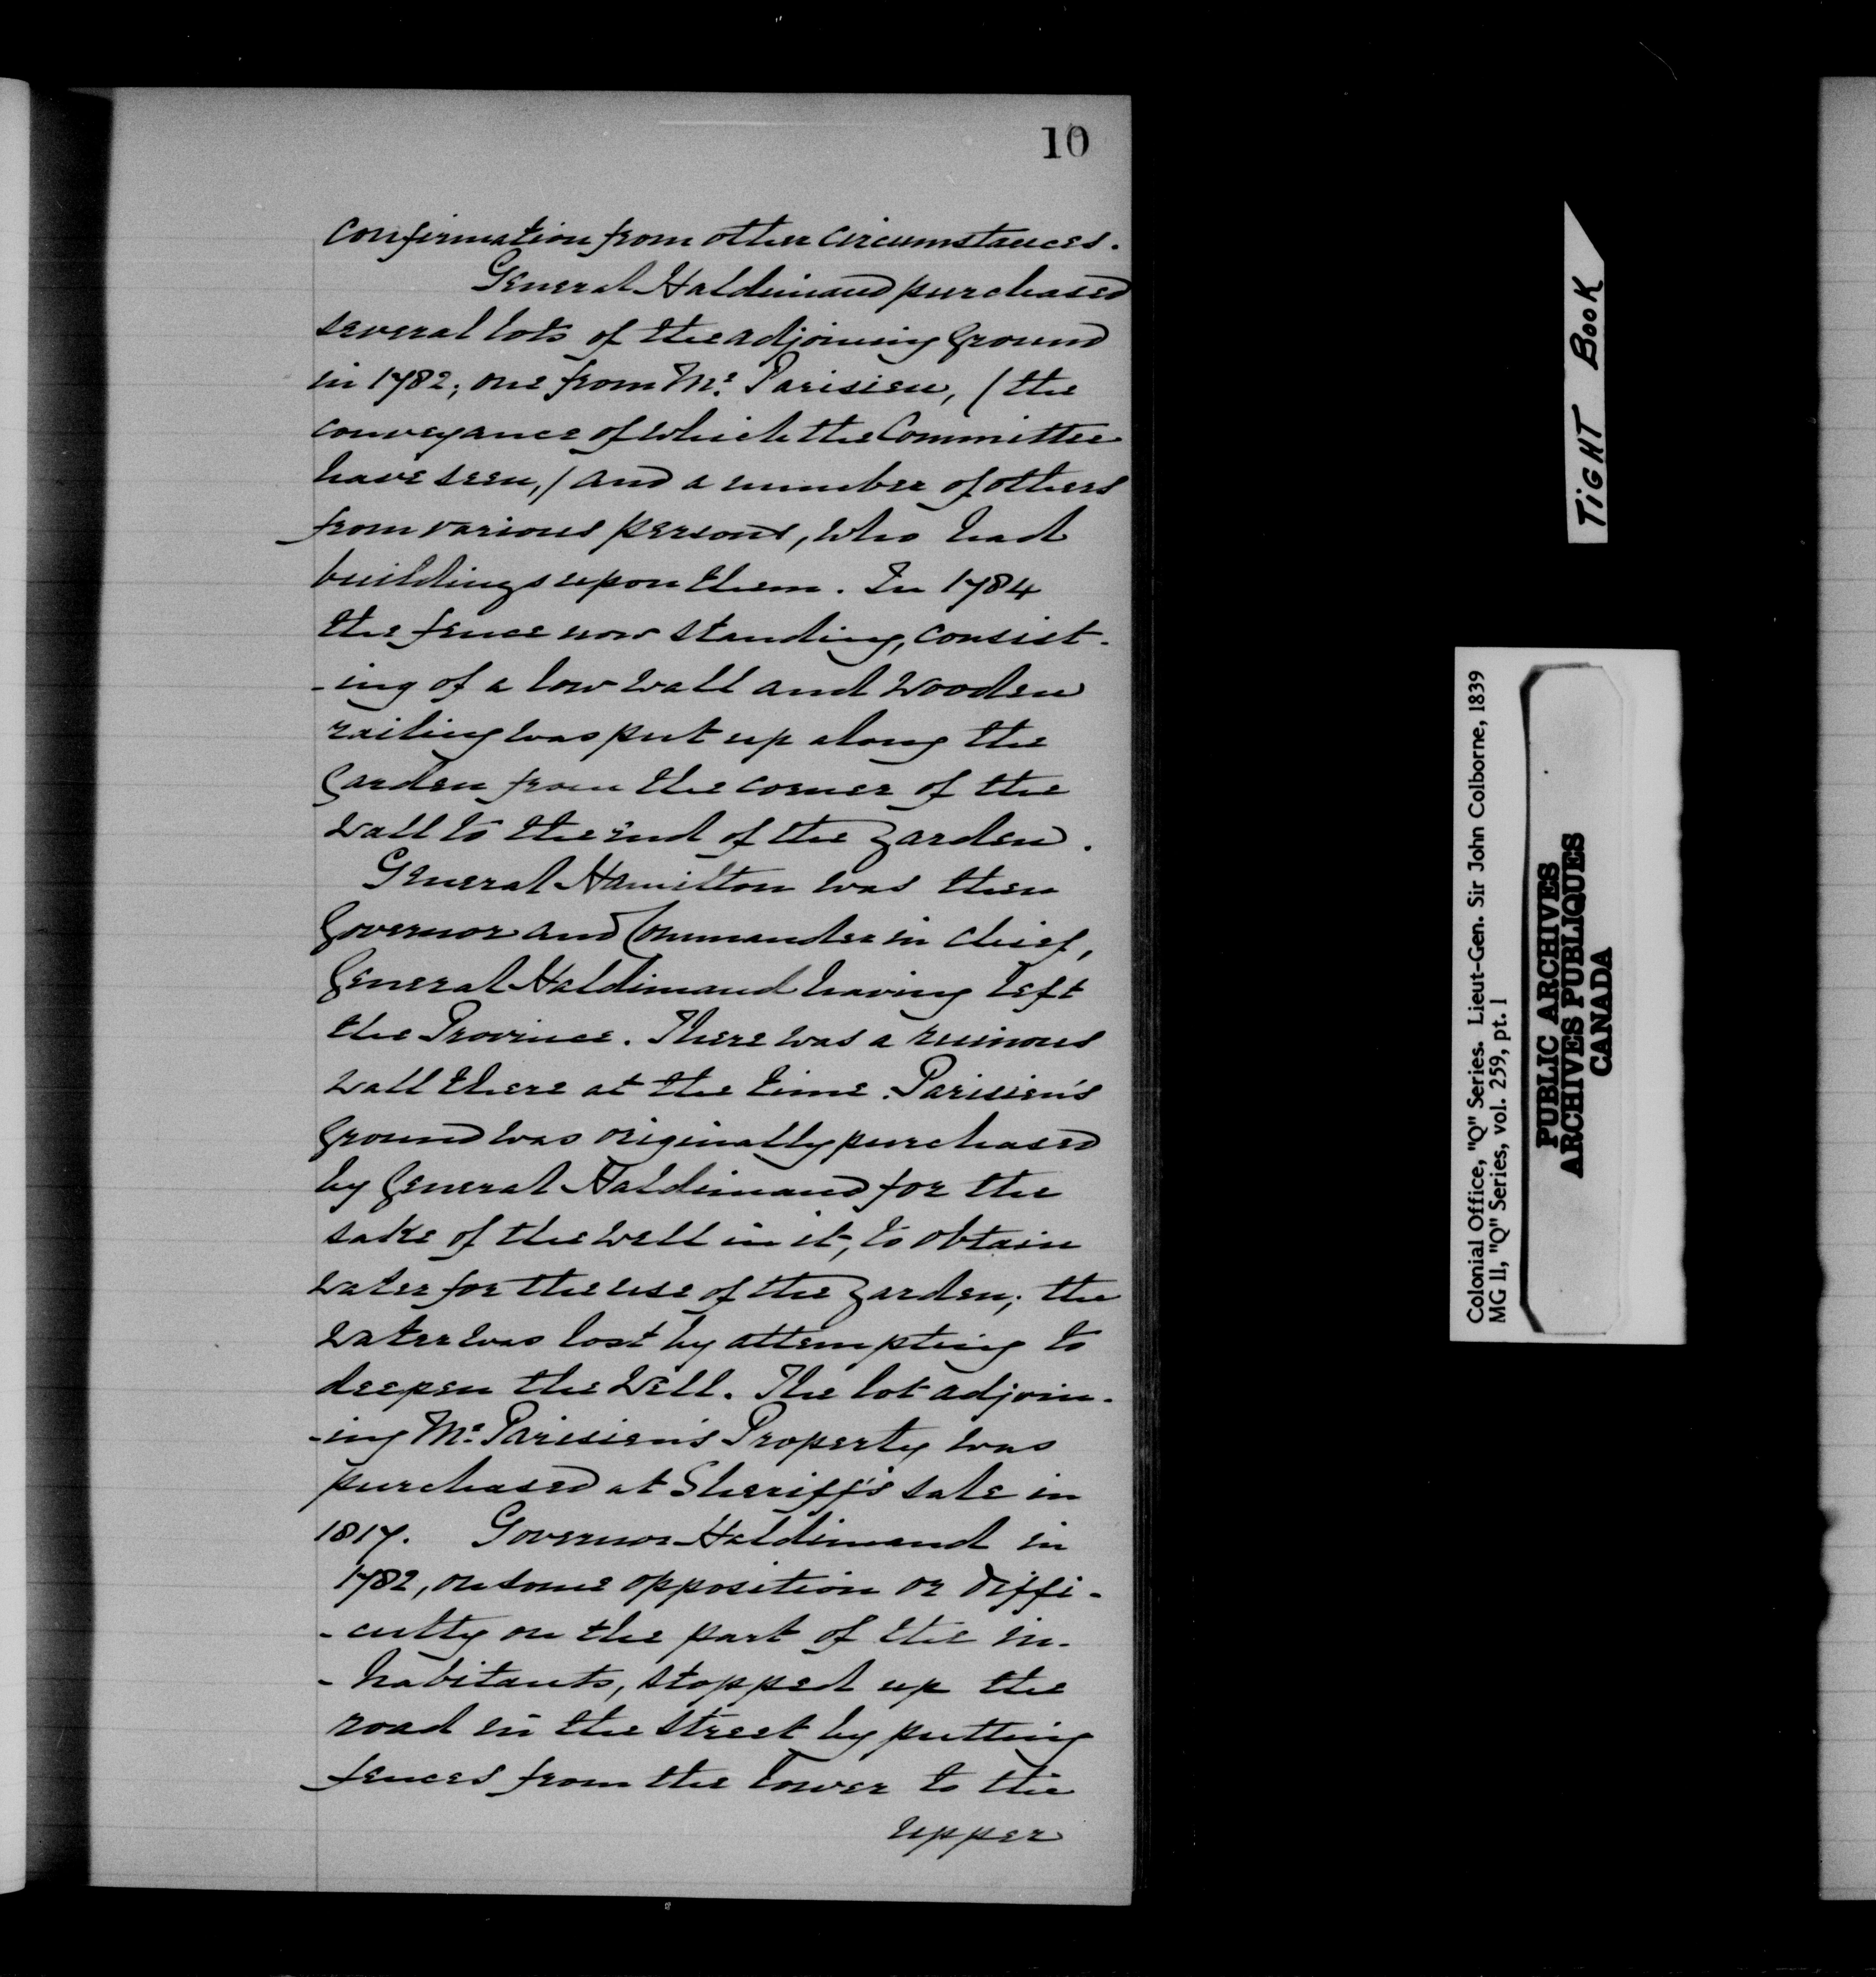 10
confirmation from other circumstances.
General Haldimand purchased
several lots of the adjoining ground
in 1782; one from Mr. Parisien, (the
conveyance of which the Committee
have seen,) and a number of others
from various persons, who had
buildings upon them. In 1784
the fence now standing, consist-
-ing of a low wall and wooden
railing was put up along the
garden from the corner of the
wall to the end of the garden.
General Hamilton was then
Governor and Commander in chief,
General Haldimand having left
the Province. There was a ruinous
wall there at the time. Parisien's
ground was originally purchased
by General Haldimand for the
sake of the well in it, to obtain
water for the use of the garden; the
water was lost by attempting to
deepen the well. The lot adjoin-
-ing Mr. Parisien's Property was
purchased at Sheriff's sale in
1817. Governor Haldimand in
1782, on some opposition or diffi-
-culty on the part of the in-
-habitants, stopped up the
road in the street by putting
fences from the lower to the
upper
TIGHT BOOK
Colonial Office, "Q" Series. Lieut-Gen. Sir John Colborne, 1839
MG 11, "Q" Series, vol. 259, pt. 1
PUBLIC ARCHIVES
ARCHIVES PUBLIQUES
CANADA